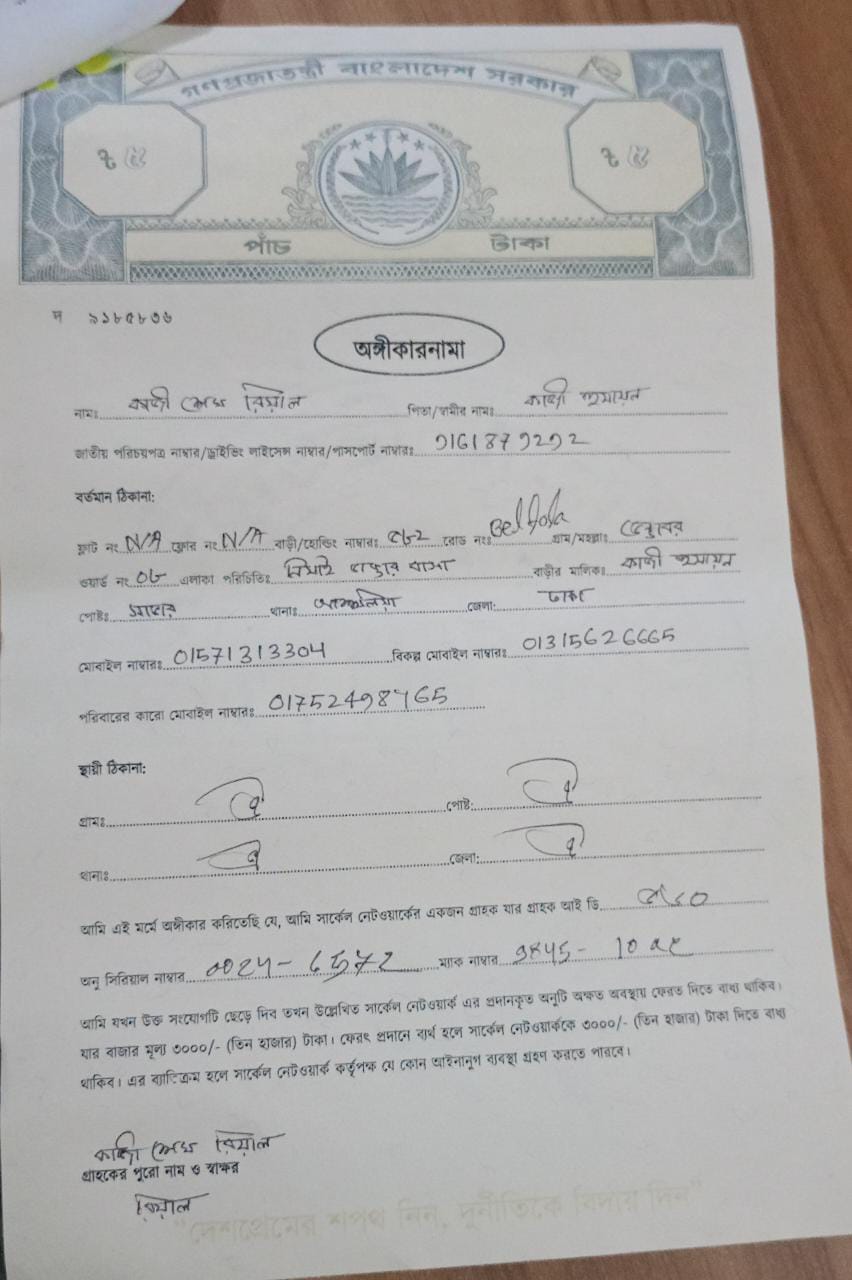 গণপ্রজাতন্ত্রী বাংলাদেশ সরকার
৳ ৫ ৳ ৫
পাঁচ টাকা
৯১৮৫৮৩৬
অঙ্গীকারনামা
নামঃ কাজী রিয়াল পিতা/স্বামীর নামঃ কাজী হুমায়ন
জাতীয় পরিচয়পত্র নাম্বার/ড্রাইভিং লাইসেন্স নাম্বার/পাসপোর্ট নাম্বারঃ
বর্তমান ঠিকানা:
ফ্লাট নং N/A ফ্লোর নং N/A বাড়ী/হোল্ডিং নাম্বারঃ রোড নংঃ গ্রাম/মহল্লাঃ
ওয়ার্ড নং এলাকা পরিচিতিঃ বাড়ীর মালিকঃ কাজী হুমায়ন
পোষ্টঃ সাভার থানাঃ আশুলিয়া জেলা: ঢাকা
মোবাইল নাম্বারঃ 01571313304 বিকল্প মোবাইল নাম্বারঃ 01315626665
পরিবারের কারো মোবাইল নাম্বারঃ
স্থায়ী ঠিকানা:
গ্রামঃ ঐ পোষ্ট: ঐ
থানাঃ ঐ জেলা: ঐ
আমি এই মর্মে অঙ্গীকার করিতেছি যে, আমি সার্কেল নেটওয়ার্কের একজন গ্রাহক যার গ্রাহক আই ডি
অনু সিরিয়াল নাম্বার ম্যাক নাম্বার
আমি যখন উক্ত সংযোগটি ছেড়ে দিব তখন উল্লেখিত সার্কেল নেটওয়ার্ক এর প্রদানকৃত অনুটি অক্ষত অবস্থায় ফেরত দিতে বাধ্য থাকিব।
যার বাজার মূল্য ৩০০০/- (তিন হাজার) টাকা। ফেরৎ প্রদানে ব্যর্থ হলে সার্কেল নেটওয়ার্ককে ৩০০০/- (তিন হাজার) টাকা দিতে বাধ্য
থাকিব। এর ব্যাতিক্রম হলে সার্কেল নেটওয়ার্ক কর্তৃপক্ষ যে কোন আইনানুগ ব্যবস্থা গ্রহণ করতে পারবে।
কাজী রিয়াল
গ্রাহকের পুরো নাম ও স্বাক্ষর
রিয়াল
"দেশপ্রেমের শপথ নিন, দুর্নীতিকে বিদায় দিন"